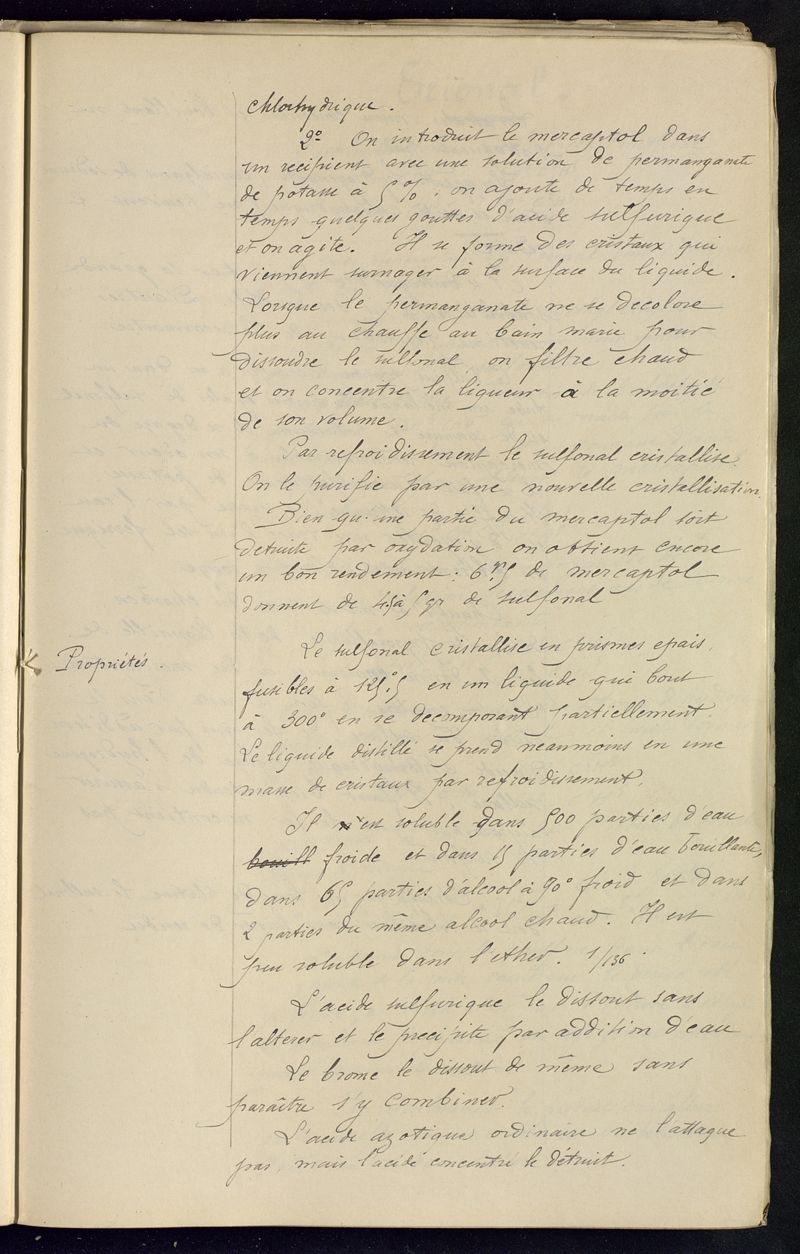 chlorhydrique.
2º On introduit le mercaptol dans
un recipient avec une solution de permanganate
de potasse à 5%. on ajoute de temps en
temps quelques gouttes d'acide sulfurique
et on agite. Il se forme des cristaux qui
viennent surnager à la surface du liquide.
Lorsque le permanganate ne se decolore
plus au chauffe au bain marie pour
dissoudre le sulfonal, on filtre chaud
et on concentre la liqueur à la moitié
de son volume.
Par refroidissement le sulfonal cristallise.
On le purifie par une nouvelle cristallisation.
Bien qu'une partie du mercaptol soit
detruite par oxydation on obtient encore
un bon rendement: 6gr,5 de mercaptol
donnent de 4,5 à 5 gr de sulfonal
Propriétés.
Le sulfonal cristallise en prismes epais,
fusibles à 125º,5 en un liquide qui bout
à 300º en se decomposant partiellement.
Le liquide distillé se prend neanmoins en une
masse de cristaux par refroidissement.
Il est soluble dans 500 parties d'eau
bouill froide et dans 15 parties d'eau bouillante,
dans 65 parties d'alcool à 90º froid et dans
2 parties du même alcool chaud. Il est
peu soluble dans l'ether. 1/136.
L'acide sulfurique le dissout sans
l'alterer et le precipite par addition d'eau
Le brome le dissout de même sans
paraître s'y combiner.
L'acide azotique ordinaire ne l'attaque
pas, mais l'acide concentré le détruit.